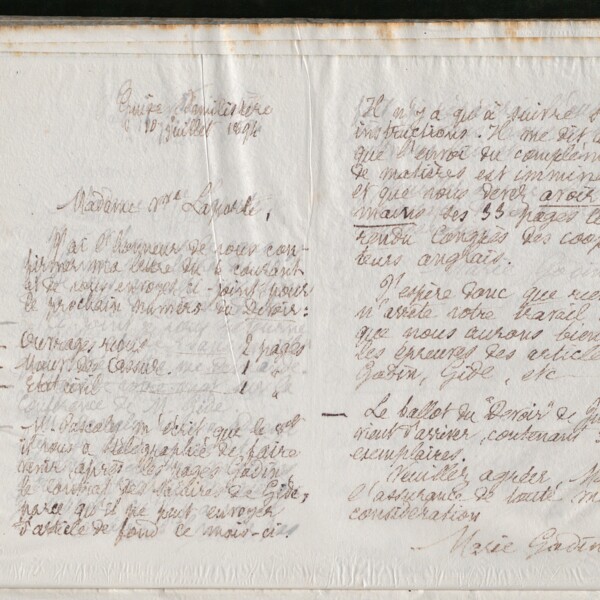 Guise Familistère
10 juillet 1891
Madame Vve Laporte,
J'ai l'honneur de vous con-
firmer ma lettre du 4 courant
et de vous envoyer ci-joint pour
le prochain numéro du Devoir:
Ouvrages reçus 2 pages
de Cassure, 1 "
Etat civil 1 "
M. Pascaly m'écrit que le
il vous a télégraphié de faire
venir après les pages Godin
le contrat des salaires de Gide,
parce qu'il ne peut envoyer
d'article de fond ce mois-ci.
Il n'y a qu'à suivre s
instructions. Il me dit a
que l'envoi du complém
de matières est immine
et que vous devez avoir
mains les 33 pages le
rendu Congrès des coop
teurs anglais.
J'espère donc que rie
n'arrête votre travail
que nous aurons bien
les épreuves des article
Godin, Gide, etc
Le ballot du "Devoir" de
vient d'arriver, contenant
exemplaires.
Veuillez agréer, M
l'assurance de toute m
considération
Marie Godin